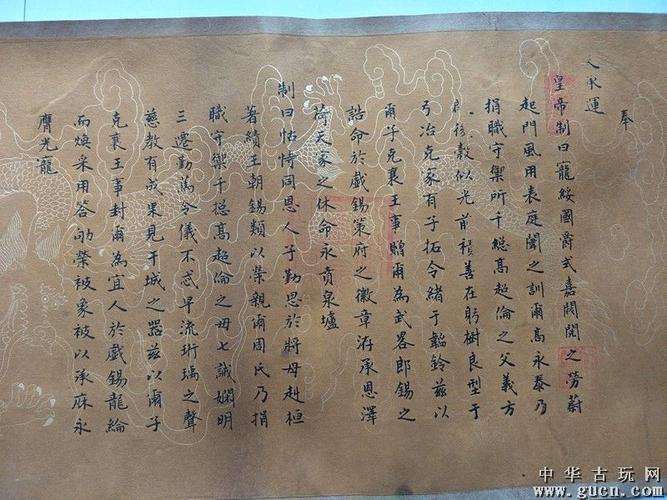 奉
天承運
皇帝制曰寵綏國爵式嘉閥閱之勞蔚
起門風用表庭闈之訓爾高永泰乃
捐職守禦所千總高超倫之父義方
後穀似光前積善在躬樹良型于
弓冶克家有子拓令緒于韜鈴茲以
爾子克襄王事贈爾為武畧郎錫之
誥命於戲錫策府之徽章洊承恩澤
荷天家之休命永賁泉壚
制曰怙恃同恩人子勤思於將母赳桓
著績王朝錫類以榮親爾周氏乃捐
職守禦千總高超倫之母七誡嫻明
三遷勤篤令儀不忒早流珩瑀之聲
慈教有成果見干城之器茲以爾子
克襄王事封爾為宜人於戲錫龍綸
而煥采用答劬榮被象被以承庥永
膺光寵
中华古玩网
www.gucn.com